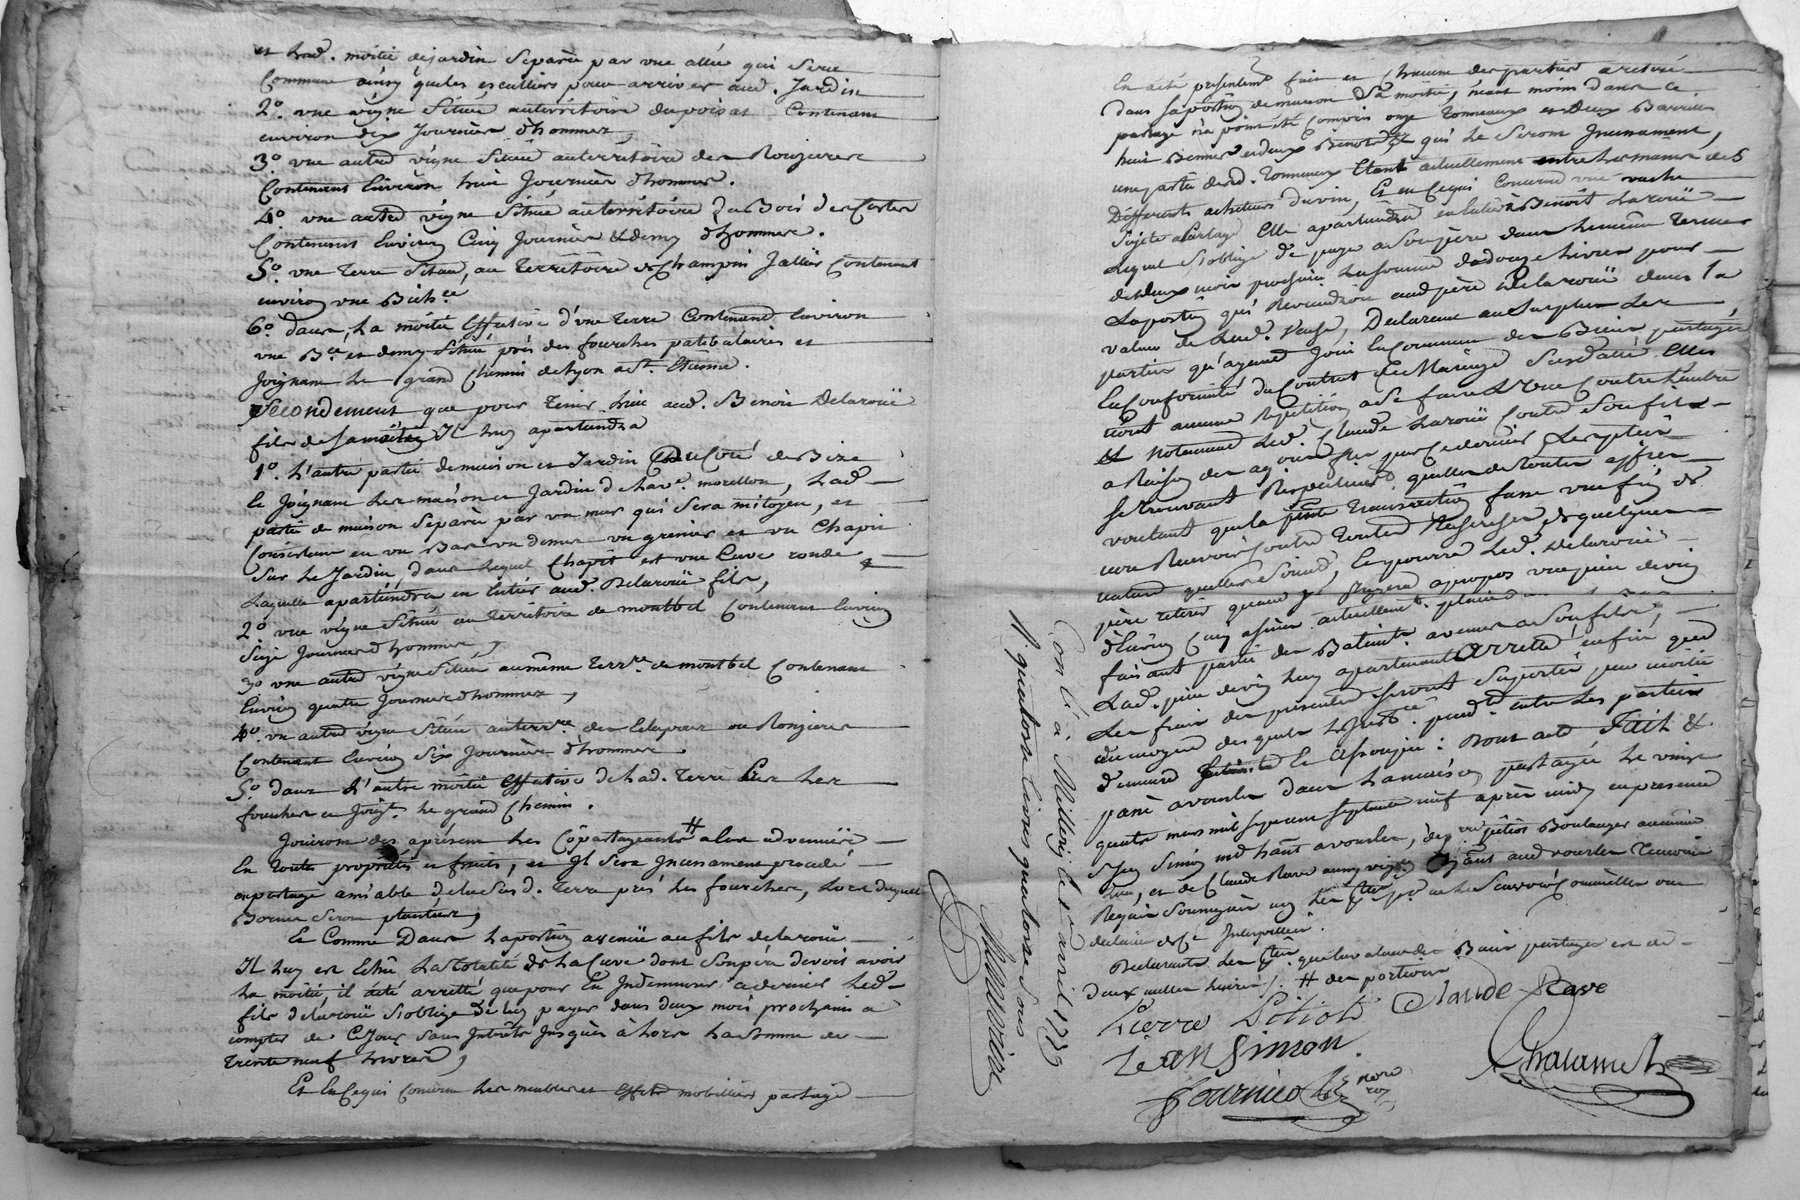 et lad. moitié de jardin Separée par une allée qui Sera
Commune ainsy que les escalliers pour arriver aud. Jardin
2° une vigne Scituée au territoire du poisat Contenant
environ dix Journées d'hommes,
3° une autre vigne Scituée au territoire des Ronzieres
Contenant Environ huit Journées d'hommes.
4° une autre vigne Scituée au territoire du Bois des Cortes
Contenant Environ Cinq Journées & demy d'hommes.
5° une terre Scituée, au territoire de Champin Jallier Contenant
environ une Bich.ée
6° dans la moitié Effective d'une terre Contenant Environ
une B.ée et demy Scituée près des fourches patibulaires et
Joignant Le grand Chemin de Lyon a St. Etienne.
Secondement que pour tenir lieu aud. Benoit Delarouë
fils de Sa moitié Il luy apartiendra
1° L'autre partie de maison et Jardin du Coté de Bize
le Joignant Les maison et Jardin d' morellon, Lad.
partie de maison Separée par un mur qui Sera mitoyen, et
Consistant en un Bas un dessus un grenier et un Chapit
Sur Le Jardin, dans Lequel Chapit est une Cuve ronde
Laquelle apartiendra en Entier aud. Delarouë fils,
2° une vigne Scituée au territoire de montbel Contenant Environ
Seize Journées d'hommes,
3° une autre vigne Scituée au même terr.re de montbel Contenant
Environ quatre Journées d'hommes,
4° une autre vigne Scituée au terr.re des ou Ronzieres
Contenant Environ Six Journées d'hommes.
5° dans L'autre moitié Effective de Lad. terre Sur Les
fourches et Joig.t Le grand Chemin.
Jouiront dès aprésent Les Copartageants # a Eux advenuës
En toutes propriétés et fruits, et Il Sera Incessament procedé
au partage amiable de la Susd. terre près Les fourches, Lors duquel
Bornes Seront plantées,
Et Comme Dans La portion avenuë au fils delarouë
Il luy est Echû La totalité de La Cuve dont Son père devoit avoir
La moitié, il a été arretté que pour En Indemniser ce dernier Led.
fils delarouë S'oblige de luy payer dans deux mois prochains a
compter de Ce Jour Sans Intérêts Jusques à Lors La Somme de
trente neuf Livres,
Et En Ce qui Concerne Les meubles et Effets mobilliers partage
En a été présentement fait et Chacune des parties a retiré
dans Sa portion de maison Sa moitié, néant moins dans Ce
partage n'a point été Compris onze tonneaux et deux Barrilles
huit Bennes et deux Benots qui Le Seront Incessament,
une partie desd. tonneaux Etant actuellement entre Les mains de
Differents acheteurs du vin, Et en Ce qui Concerne une vache
Sujete a Partage Elle apartiendra en Entier a Benoit Larouë
Lequel S'oblige de payer a Son père dans Le même terme
de deux mois prochains La Somme de douze Livres pour
La portion qui Reviendroit aud. père Delarouë dans la
valeur de Lad. vache, Declarent au Surplus Les
parties qu'ayant Joui En Commun des Biens partagés
En Conformité du Contrat de Mariage Susdatté Elles
n'ont aucune Repetition a Se faire L'une Contre L'autre
et notament Led. Claude Larouë Contre Son fils
a Raison des
Se trouvant Respectivement quittes de toutes affaires
voulant que la p.nte transaction fasse une fin de
non Recevoir Contre toutes Recherches de quelques
nature qu'elles Soient, Et pourra Led. Delarouë
père retirer quand Jugera apropos une pièce de vin
d'Environ Cinq asnées actuellement placée
faisant partie des Batiments avenus a Son fils,
Lad. pièce de vin luy apartenant arretté enfin que
Les frais des présentes Seront Suportés par moitié
au moyen des quels entre Les parties
demeure et assoupie: Dont acte Fait &
passé a vourles dans La maison partagée Le vingt
quatre mars mil Sept cent Septante neuf après midy en présence
de S.r Jean Simon m.d hant a vourles, de pierre pétiot Boulanger au même
Lieu, et de Claude Rave aussy vig.n hant aud vourles temoins
Requis Soussignés non Les parties p.r ne Le Scavoir Comme elles ont
declaré de Ce Interpellées.
Declarants Les parties que la valeur des Biens partagés est de
deux milles Livres /. # des portions
Pierre Petiot Claude Rave
Jean Simon
Fournier
Chalamel
Con.lé à Millery Le 1.er avril 1779
R. quatorze Livres quatorze Sous